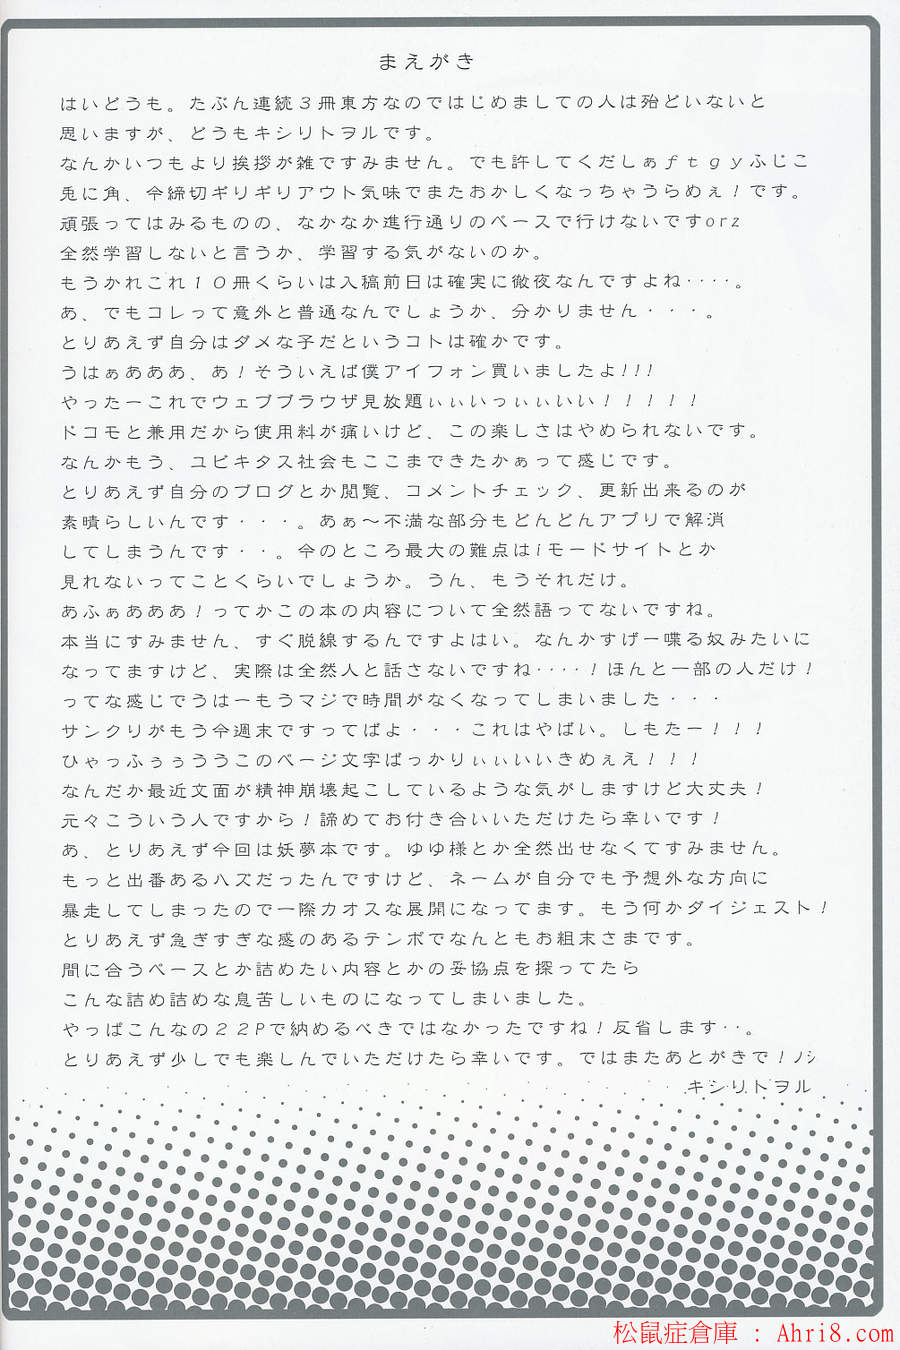 まえがき
はいどうも。たぶん連続３冊東方なのではじめましての人は殆どいないと
思いますが、どうもキシリトヲルです。
なんかいつもより挨拶が雑ですみません。でも許してくだしぁｆｔｇｙふじこ
兎に角、今締切ギリギリアウト気味でまたおかしくなっちゃうらめぇ！です。
頑張ってはみるものの、なかなか進行通りのペースで行けないですorz
全然学習しないと言うか、学習する気がないのか。
もうかれこれ１０冊くらいは入稿前日は確実に徹夜なんですよね‥‥。
あ、でもコレって意外と普通なんでしょうか、分かりません・・・。
とりあえず自分はダメな子だというコトは確かです。
うはぁあああ、あ！そういえば僕アイフォン買いましたよ!!!
やったーこれでウェブブラウザ見放題ぃぃいっぃぃいい！！！！！
ドコモと兼用だから使用料が痛いけど、この楽しさはやめられないです。
なんかもう、ユビキタス社会もここまできたかぁって感じです。
とりあえず自分のブログとか閲覧、コメントチェック、更新出来るのが
素晴らしいんです・・・。あぁ～不満な部分もどんどんアプリで解消
してしまうんです・・。今のところ最大の難点はiモードサイトとか
見れないってことくらいでしょうか。うん、もうそれだけ。
あふぁあああ！ってかこの本の内容について全然語ってないですね。
本当にすみません、すぐ脱線するんですよはい。なんかすげー喋る奴みたいに
なってますけど、実際は全然人と話さないですね‥‥！ほんと一部の人だけ！
ってな感じでうはーもうマジで時間がなくなってしまいました・・・
サンクリがもう今週末ですってばよ・・・これはやばい。しもたー！！！
ひゃっふぅぅううこのページ文字ばっかりぃぃいいきめぇえ！！！
なんだか最近文面が精神崩壊起こしているような気がしますけど大丈夫！
元々こういう人ですから！諦めてお付き合いいただけたら幸いです！
あ、とりあえず今回は妖夢本です。ゆゆ様とか全然出せなくてすみません。
もっと出番あるハズだったんですけど、ネームが自分でも予想外な方向に
暴走してしまったので一際カオスな展開になってます。もう何かダイジェスト！
とりあえず急ぎすぎな感のあるテンポでなんともお粗末さまです。
間に合うペースとか詰めたい内容とかの妥協点を探ってたら
こんな詰め詰めな息苦しいものになってしまいました。
やっぱこんなの２２Pで納めるべきではなかったですね！反省します‥。
とりあえず少しでも楽しんでいただけたら幸いです。ではまたあとがきで！ﾉｼ
キシリトヲル
松鼠症倉庫 : Ahri8.com